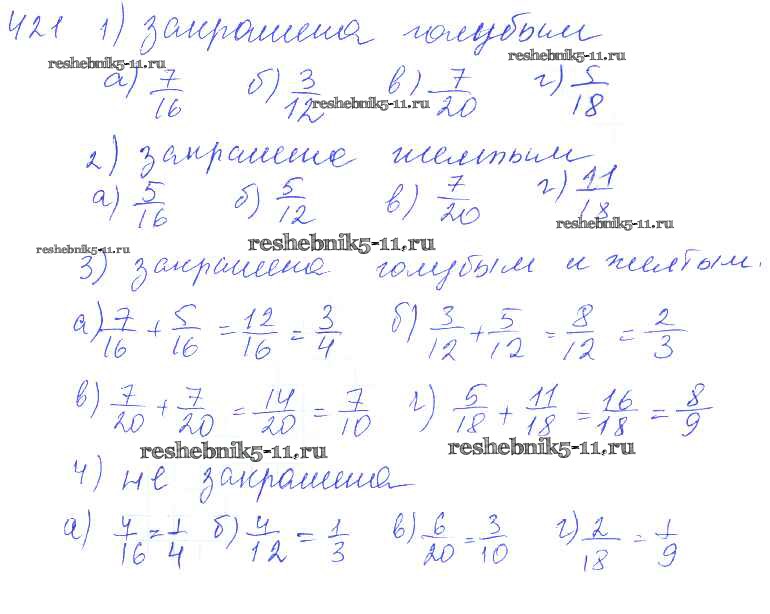 421 1) закрашена голубым
reshebnik5-11.ru reshebnik5-11.ru
а) 7/16 б) 3/12 в) 7/20 г) 5/18
reshebnik5-11.ru
2) закрашено желтым
а) 5/16 б) 5/12 в) 7/20 г) 11/18
reshebnik5-11.ru
reshebnik5-11.ru reshebnik5-11.ru
3) закрашена голубым и желтым.
а) 7/16 + 5/16 = 12/16 = 3/4 б) 3/12 + 5/12 = 8/12 = 2/3
в) 7/20 + 7/20 = 14/20 = 7/10 г) 5/18 + 11/18 = 16/18 = 8/9
reshebnik5-11.ru reshebnik5-11.ru
4) не закрашена
а) 4/16 = 1/4 б) 4/12 = 1/3 в) 6/20 = 3/10 г) 2/18 = 1/9